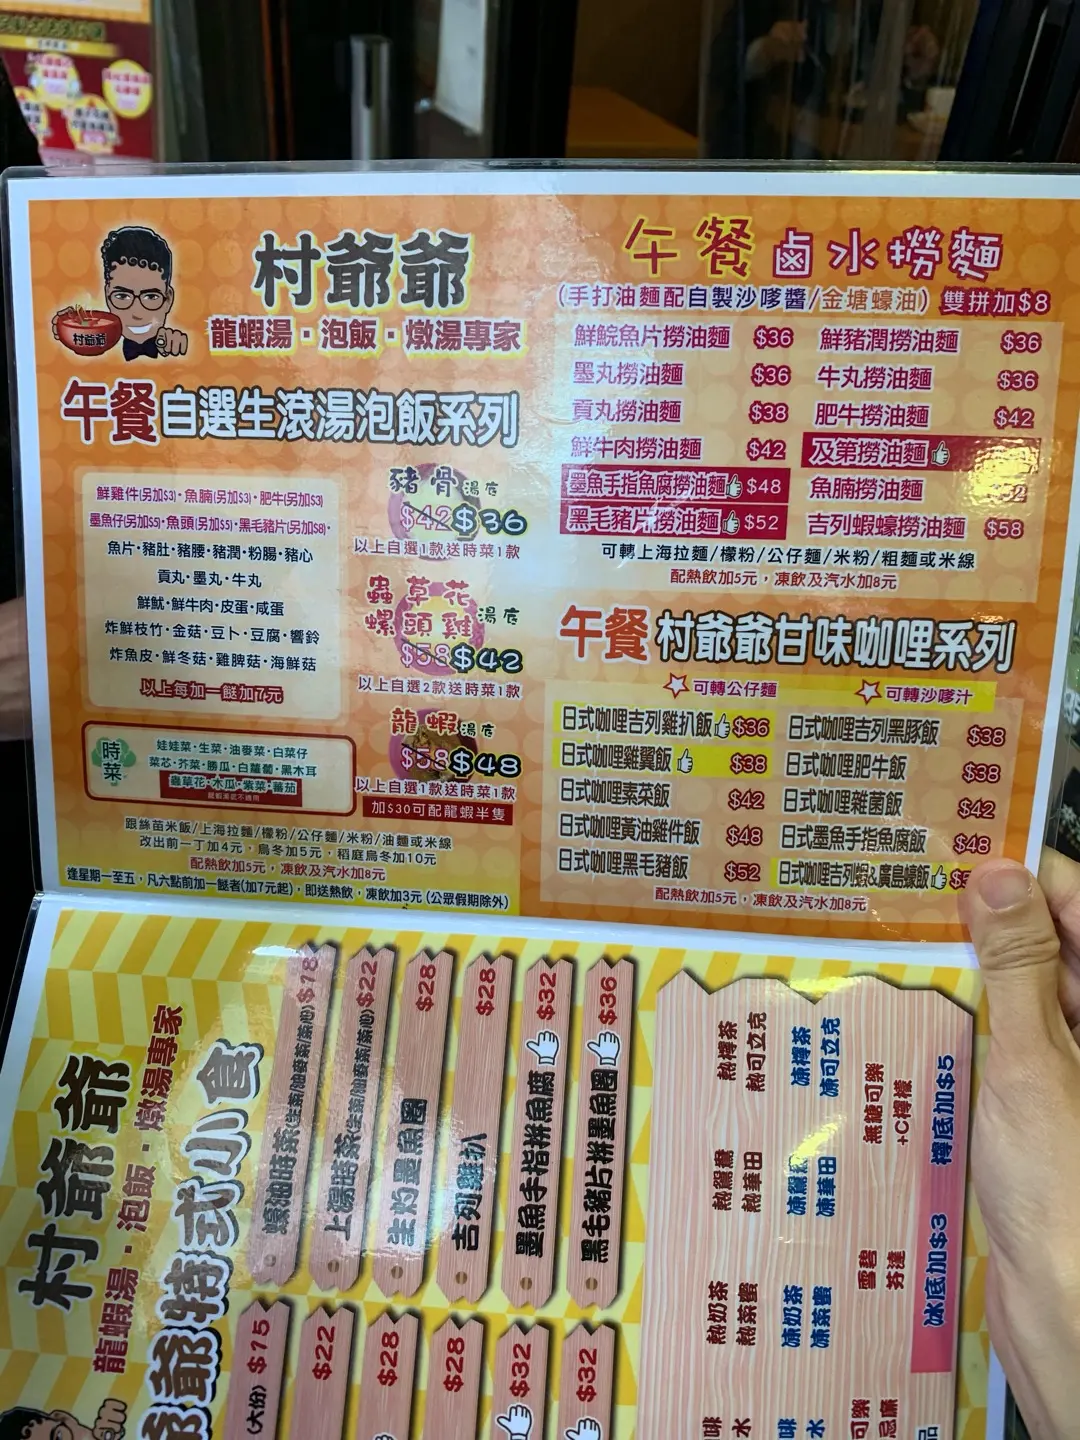 村爺爺
村爺爺
龍蝦湯·泡飯·燉湯專家
午餐 自選生滾湯泡飯系列
鮮雞件(另加$3)·魚腩(另加$3)·肥牛(另加$3)
墨魚仔(另加$5)·魚頭(另加$5)·黑毛豬片(另加$8)·
魚片·豬肚·豬腰·豬潤·粉腸·豬心
貢丸·墨丸·牛丸
鮮魷·鮮牛肉·皮蛋·咸蛋
炸鮮枝竹·金菇·豆卜·豆腐·響鈴
炸魚皮·鮮冬菇·雞脾菇·海鮮菇
以上每加一餸加7元
豬骨湯底
$42 $36
以上自選1款送時菜1款
蟲草花
螺頭雞湯底
$58 $42
以上自選2款送時菜1款
龍蝦湯底
$58 $48
以上自選1款送時菜1款
加$30可配龍蝦半隻
時菜
娃娃菜·生菜·油麥菜·白菜仔
菜芯·芥菜·勝瓜·白蘿蔔·黑木耳
蟲草花·木瓜·紫菜·蕃茄
跟絲苗米飯/上海拉麵/檬粉/公仔麵/米粉/油麵或米線
改出前一丁加4元，烏冬加5元，稻庭烏冬加10元
配熱飲加5元，凍飲及汽水加8元
逢星期一至五，凡六點前加一餸者(加7元起)，即送熱飲，凍飲加3元 (公眾假期除外)
午餐 鹵水撈麵
(手打油麵配自製沙嗲醬/金塘蠔油) 雙拼加$8
鮮鯇魚片撈油麵 $36 鮮豬潤撈油麵 $36
墨丸撈油麵 $36 牛丸撈油麵 $36
貢丸撈油麵 $38 肥牛撈油麵 $42
鮮牛肉撈油麵 $42 及第撈油麵
墨魚手指魚腐撈油麵 $48 魚腩撈油麵
黑毛豬片撈油麵 $52 吉列蝦蠔撈油麵 $58
可轉上海拉麵/檬粉/公仔麵/米粉/粗麵或米線
配熱飲加5元，凍飲及汽水加8元
午餐 村爺爺甘味咖哩系列
可轉公仔麵 可轉沙嗲汁
日式咖哩吉列雞扒飯 $36 日式咖哩吉列黑豚飯 $38
日式咖哩雞翼飯 $38 日式咖哩肥牛飯 $38
日式咖哩素菜飯 $42 日式咖哩雜菌飯 $42
日式咖哩黃油雞件飯 $48 日式墨魚手指魚腐飯 $48
日式咖哩黑毛豬飯 $52 日式咖哩吉列蝦&廣島蠔飯
配熱飲加5元，凍飲及汽水加8元
村爺爺
龍蝦湯·泡飯·燉湯專家
爺爺特式小食
蠔油時菜(生菜/油麥菜/菜心) $18
上湯時菜(生菜/油麥菜/菜心) $22
生灼墨魚圈 $28
吉列雞扒 $28
墨魚手指拼魚腐 $32
黑毛豬片拼墨魚圈 $36
(大份) $15
$22
$28
$28
$32
$32
熱檸茶
熱可立克
凍檸茶
凍可立克
無糖可樂
+C檸檬
熱鴛鴦
熱華田
凍鴛鴦
凍華田
雪碧
芬達
熱奶茶
熱茶蜜
凍奶茶
凍茶蜜
冰底加$3 撈底加$5